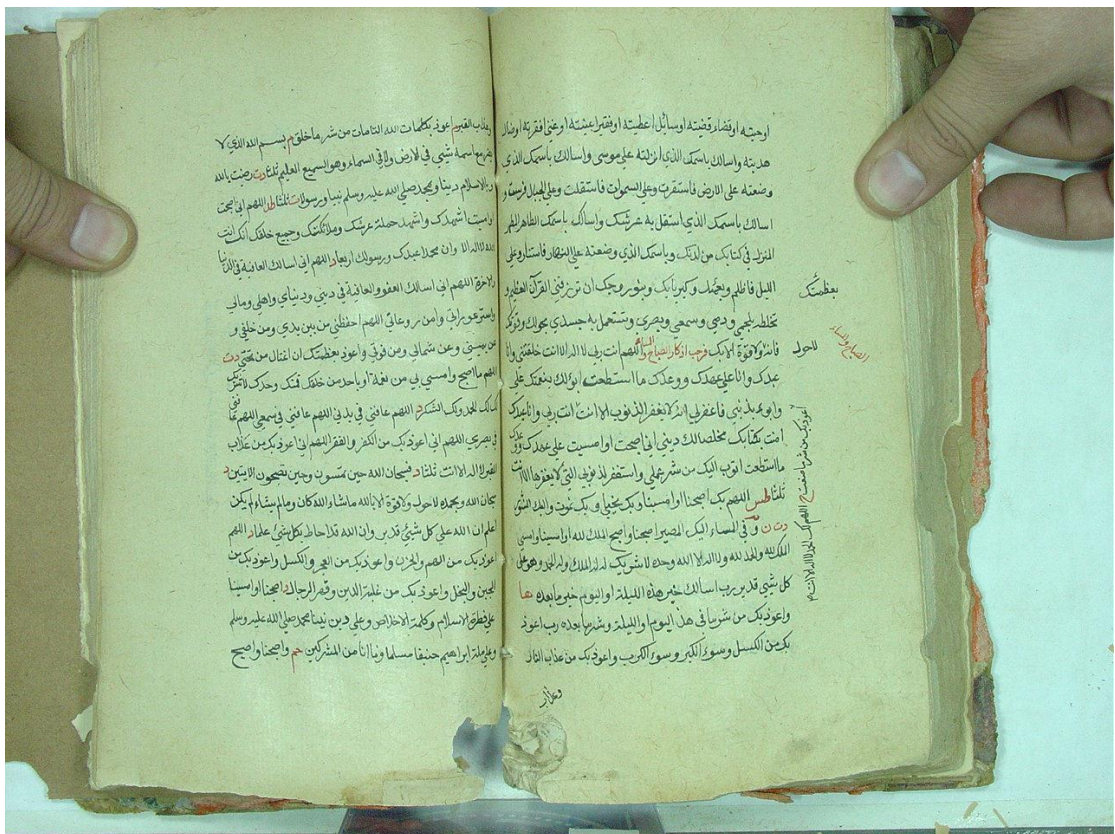 اوحيته او قضاء قضيته او سائل اعطيته او فقير اغنيته او غني افقرته او ضال
هديته واسالك باسمك الذي انزلته على موسى واسالك باسمك الذي
وضعته على الارض فاستقرت وعلى السموات فاستقلت وعلى الجبال فرست و
اسالك باسمك الذي استقل به عرشك واسالك باسمك الطاهر الطهر
المنزل في كتابك من لدنك وباسمك الذي وضعته على النهار فاستنار وعلى
الليل فاظلم وبعظمتك وكبريائك وبنور وجهك ان ترزقني القرآن العظيم و
تخلطه بلحمي ودمي وسمعي وبصري وتستعمل به جسدي بحولك وقوتك
فانه لا قوة الا بك اذكار الصباح اللهم انت ربي لا اله الا انت خلقتني وانا
عبدك وانا على عهدك ووعدك ما استطعت ابوء لك بنعمتك علي
وابوء بذنبي فاغفر لي انه لا يغفر الذنوب الا انت انت ربي وانا عبدك
امنت بكتابك مخلصا لك ديني اني اصبحت او امسيت على عهدك
ما استطعت اتوب اليك من شر عملي واستغفر لذنوبي التي لا يغفرها الا انت
ثلثا طس اللهم بك اصبحنا او امسينا وبك نحيى وبك نموت واليك النشور
وفي المساء اليك المصير اصبحنا واصبح الملك لله او امسينا وامسى
الملك لله والحمد لله ولا اله الا الله وحده لا شريك له له الملك وله الحمد وهو على
كل شيء قدير رب اسالك خير هذه الليلة او اليوم خير ما بعده ها
واعوذ بك من شر ما في هذا اليوم او الليلة وشر ما بعده رب اعوذ
بك من الكسل وسوء الكبر وسوء الكرب واعوذ بك من عذاب النار
وعذاب
بعظمتك
لا حول
الصباح والمساء
اعوذ بك من شر ما صنعت اللهم لك الحمد لا اله الا انت
وعذاب القبر م اعوذ بكلمات الله التامات من شر ما خلق م بسم الله الذي لا
يضر مع اسمه شيء في الارض ولا في السماء وهو السميع العليم ثلثا رضيت بالله
وبالاسلام دينا وبمحمد صلى الله عليه وسلم نبيا ورسولا ثلثا اللهم اني اصبحت
او امسيت اشهدك واشهد حملة عرشك وملائكتك وجميع خلقك انك انت
الله لا اله الا وان محمدا عبدك ورسولك اربعا د اللهم اني اسالك العافية في الدنيا
والاخرة اللهم اني اسالك العفو والعافية في ديني ودنياي واهلي ومالي
واستر عوراتي وامن روعاتي اللهم احفظني من بين يدي ومن خلفي و
عن يميني وعن شمالي ومن فوقي واعوذ بعظمتك ان اغتال من تحتي
اللهم ما اصبح وامسى بي من نعمة او باحد من خلقك فمنك وحدك لا شريك
لك لك الحمد ولك الشكر د اللهم عافني في بدني اللهم عافني في سمعي اللهم عا
في بصري اللهم اني اعوذ بك من الكفر والفقر اللهم اني اعوذ بك من عذاب
القبر لا اله الا انت ثلثا د فسبحان الله حين تمسون وحين تصبحون الايتين د
سبحان الله وبحمده لا حول ولا قوة الا بالله ما شاء الله كان وما لم يشاء لم يكن
اعلم ان الله على كل شيء قدير وان الله قد احاط بكل شيء علما د اللهم
اعوذ بك من الهم والحزن واعوذ بك من العجز والكسل واعوذ بك من
الجبن والبخل واعوذ بك من غلبة الدين وقهر الرجال د اصبحنا او امسينا
على فطرة الاسلام وكلمة الاخلاص وعلى دين نبينا محمد صلى الله عليه وسلم
وعلى ملة ابراهيم حنيفا مسلما وما انا من المشركين واصبحنا واصبح